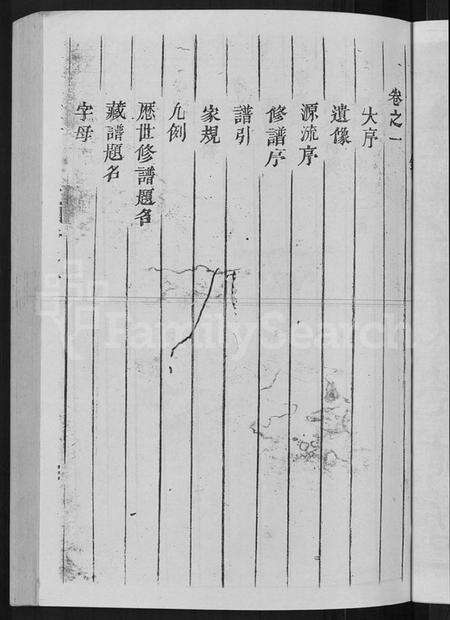 卷之一
大序
遺像
源流序
修譜序
譜引
家規
凡例
歷世修譜題名
藏譜題名
字母
FamilySearch